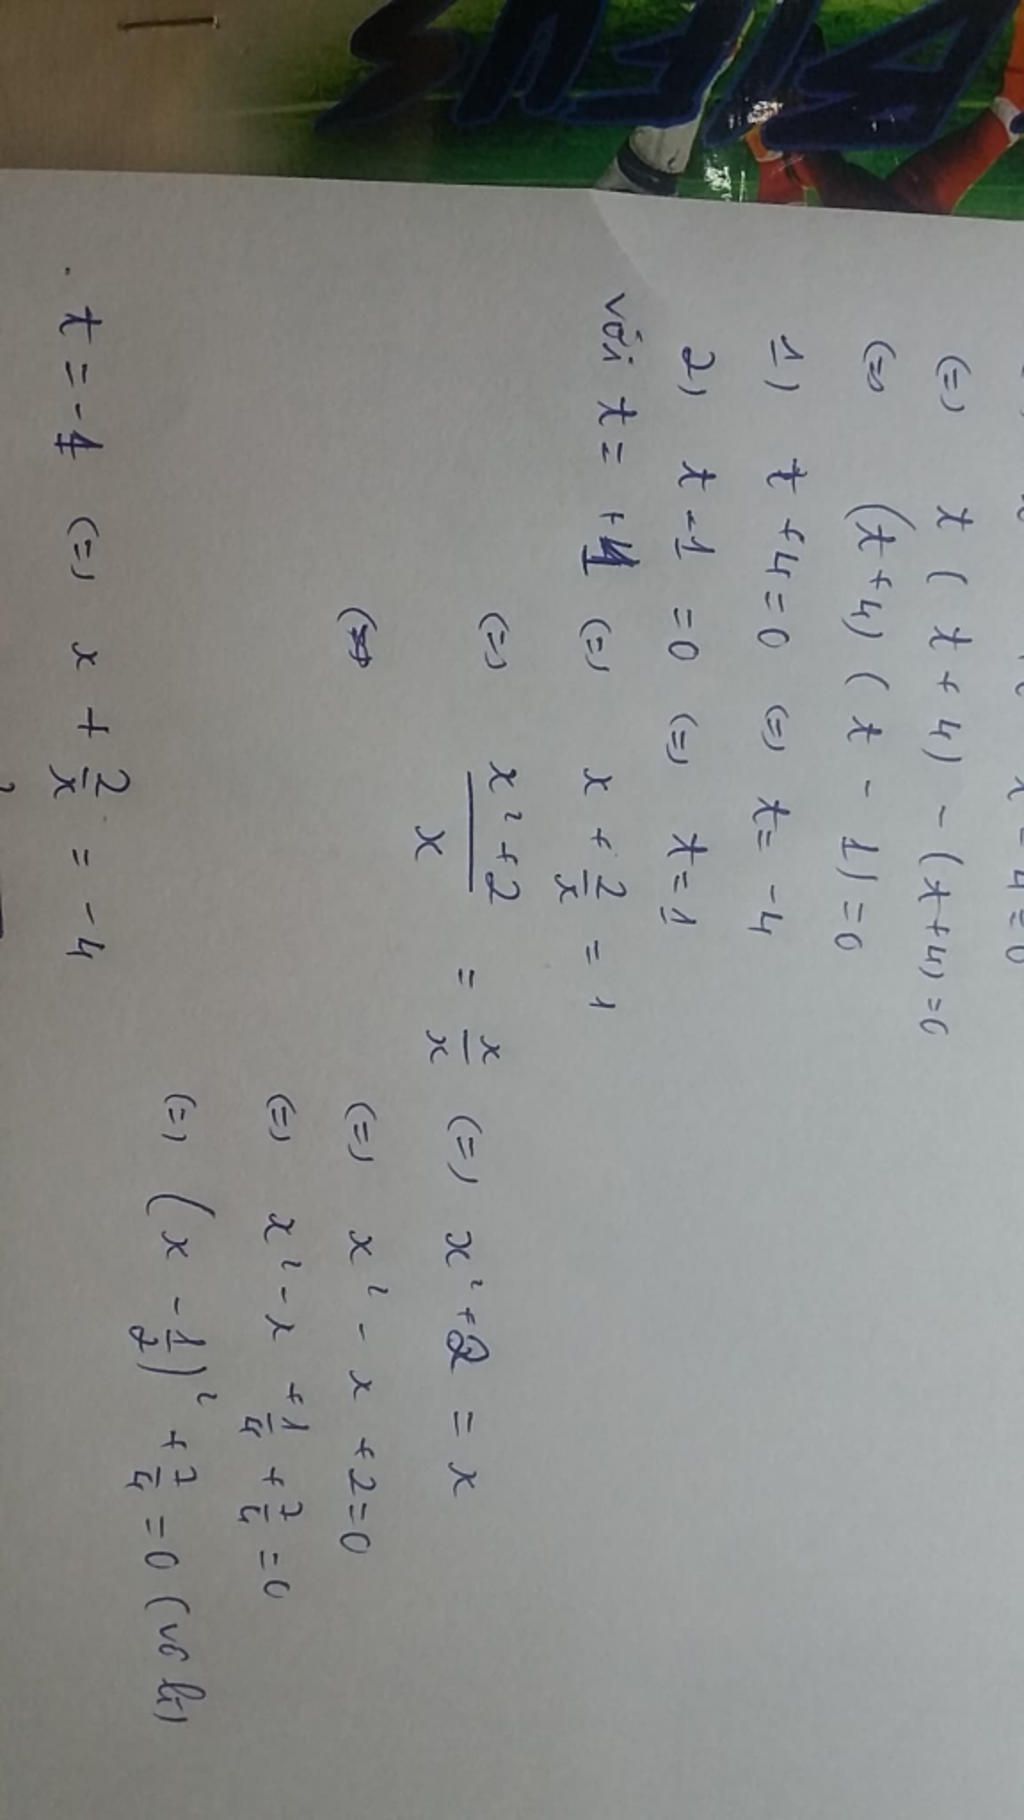 (=) t(t+4) - (t+4) = 0
(=) (t+4)(t - 1) = 0
1) t+4=0 (=) t= -4
2) t-1=0 (=) t=1
với t= +1 (=) x + 2/x = 1
(=) (x²+2)/x = x/x (=) x²+2 = x
(=) x² - x +2=0
(=) x² - x + 1/4 + 7/4 = 0
(=) (x - 1/2)² + 7/4 = 0 (vô lí)
. t = -4 (=) x + 2/x = -4